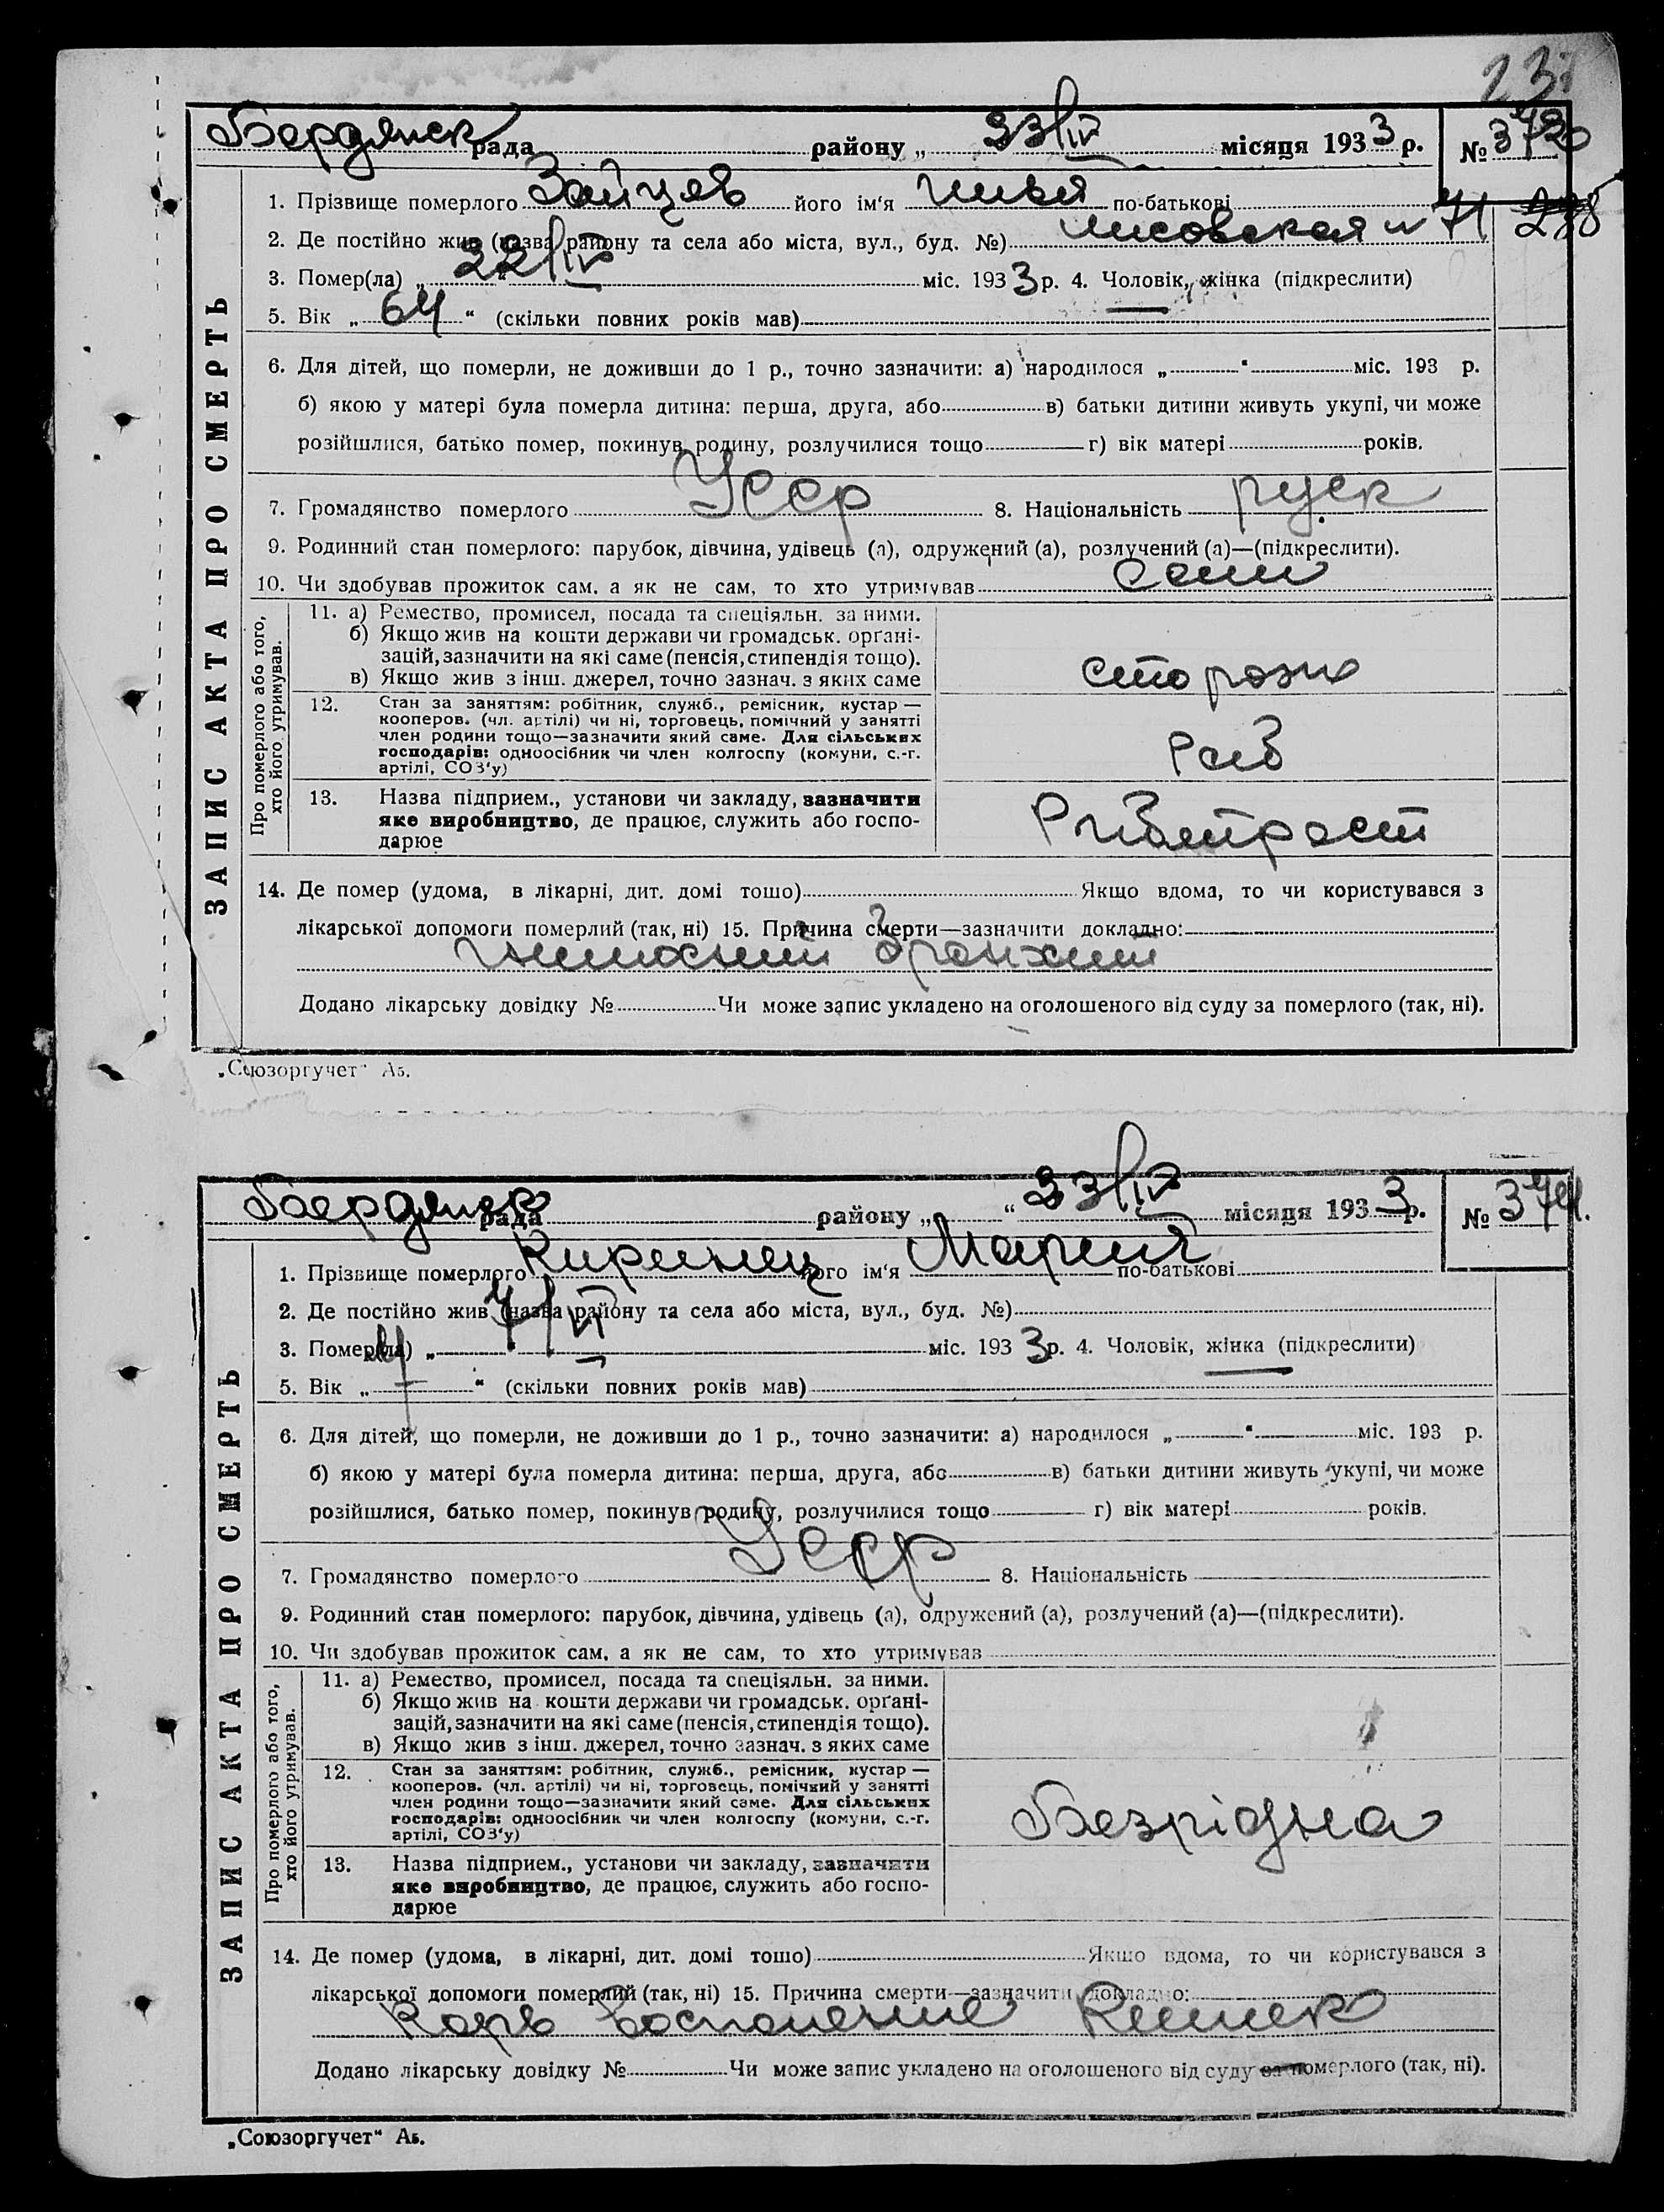 Бердянск рада району „ 23/IV місяця 1933 р. №
1. Прізвище померлого Зайцев його ім'я Илья по-батькові
2. Де постійно жив (назва району та села або міста, вул., буд. №) Лисовская № 71
3. Помер(ла) „ 22/IV " міс. 1933 р. 4. Чоловік, жінка (підкреслити)
5. Вік „ 64 " (скільки повних років мав)
6. Для дітей, що померли, не доживши до 1 р., точно зазначити: а) народилося „ " міс. 193 р.
б) якою у матері була померла дитина: перша, друга, або в) батьки дитини живуть укупі, чи може
розійшлися, батько помер, покинув родину, розлучилися тощо г) вік матері років.
7. Громадянство померлого Усср 8. Національність руск
9. Родинний стан померлого: парубок, дівчина, удівець (а), одружений (а), розлучений (а)—(підкреслити).
10. Чи здобував прожиток сам, а як не сам, то хто утримував сам
ЗАПИС АКТА ПРО СМЕРТЬ
Про померлого або того, хто його утримував.
11. а) Ремество, промисел, посада та спеціяльн. за ними.
б) Якщо жив на кошти держави чи громадськ. орґані-
зацій, зазначити на які саме (пенсія, стипендія тощо).
в) Якщо жив з інш. джерел, точно зазнач. з яких саме
сторож
12. Стан за заняттям: робітник, служб., ремісник, кустар —
кооперов. (чл. артілі) чи ні, торговець, помічний у занятті
член родини тощо—зазначити який саме. Для сільських
господарів: одноосібник чи член колгоспу (комуни, с.-г.
артілі, СОЗ'у)
раб
13. Назва підприєм., установи чи закладу, зазначити
яке виробництво, де працює, служить або госпо-
дарює
Рибтрест
14. Де помер (удома, в лікарні, дит. домі тощо) Якщо вдома, то чи користувався з
лікарської допомоги померлий (так, ні) 15. Причина смерти—зазначити докладно:
гнилосний бронхит
Додано лікарську довідку № Чи може запис укладено на оголошеного від суду за померлого (так, ні).
„Союзоргучет" А5.
Бердянск рада району „ " 23/IV місяця 1933 р. №
1. Прізвище померлого його ім'я Мария по-батькові
2. Де постійно жив (назва району та села або міста, вул., буд. №)
3. Помер(ла) „ міс. 1933 р. 4. Чоловік, жінка (підкреслити)
5. Вік „ " (скільки повних років мав)
6. Для дітей, що померли, не доживши до 1 р., точно зазначити: а) народилося „ " міс. 193 р.
б) якою у матері була померла дитина: перша, друга, або в) батьки дитини живуть укупі, чи може
розійшлися, батько помер, покинув родину, розлучилися тощо г) вік матері років.
7. Громадянство померлого Усср 8. Національність
9. Родинний стан померлого: парубок, дівчина, удівець (а), одружений (а), розлучений (а)—(підкреслити).
10. Чи здобував прожиток сам, а як не сам, то хто утримував
ЗАПИС АКТА ПРО СМЕРТЬ
Про померлого або того, хто його утримував.
11. а) Ремество, промисел, посада та спеціяльн. за ними.
б) Якщо жив на кошти держави чи громадськ. орґані-
зацій, зазначити на які саме (пенсія, стипендія тощо).
в) Якщо жив з інш. джерел, точно зазнач. з яких саме
12. Стан за заняттям: робітник, служб., ремісник, кустар —
кооперов. (чл. артілі) чи ні, торговець, помічний у занятті
член родини тощо—зазначити який саме. Для сільських
господарів: одноосібник чи член колгоспу (комуни, с.-г.
артілі, СОЗ'у)
Безрідна
13. Назва підприєм., установи чи закладу, зазначити
яке виробництво, де працює, служить або госпо-
дарює
14. Де помер (удома, в лікарні, дит. домі тощо) Якщо вдома, то чи користувався з
лікарської допомоги померлий (так, ні) 15. Причина смерти—зазначити докладно:
Корь воспаление Кишек
Додано лікарську довідку № Чи може запис укладено на оголошеного від суду за померлого (так, ні).
„Союзоргучет" А5.